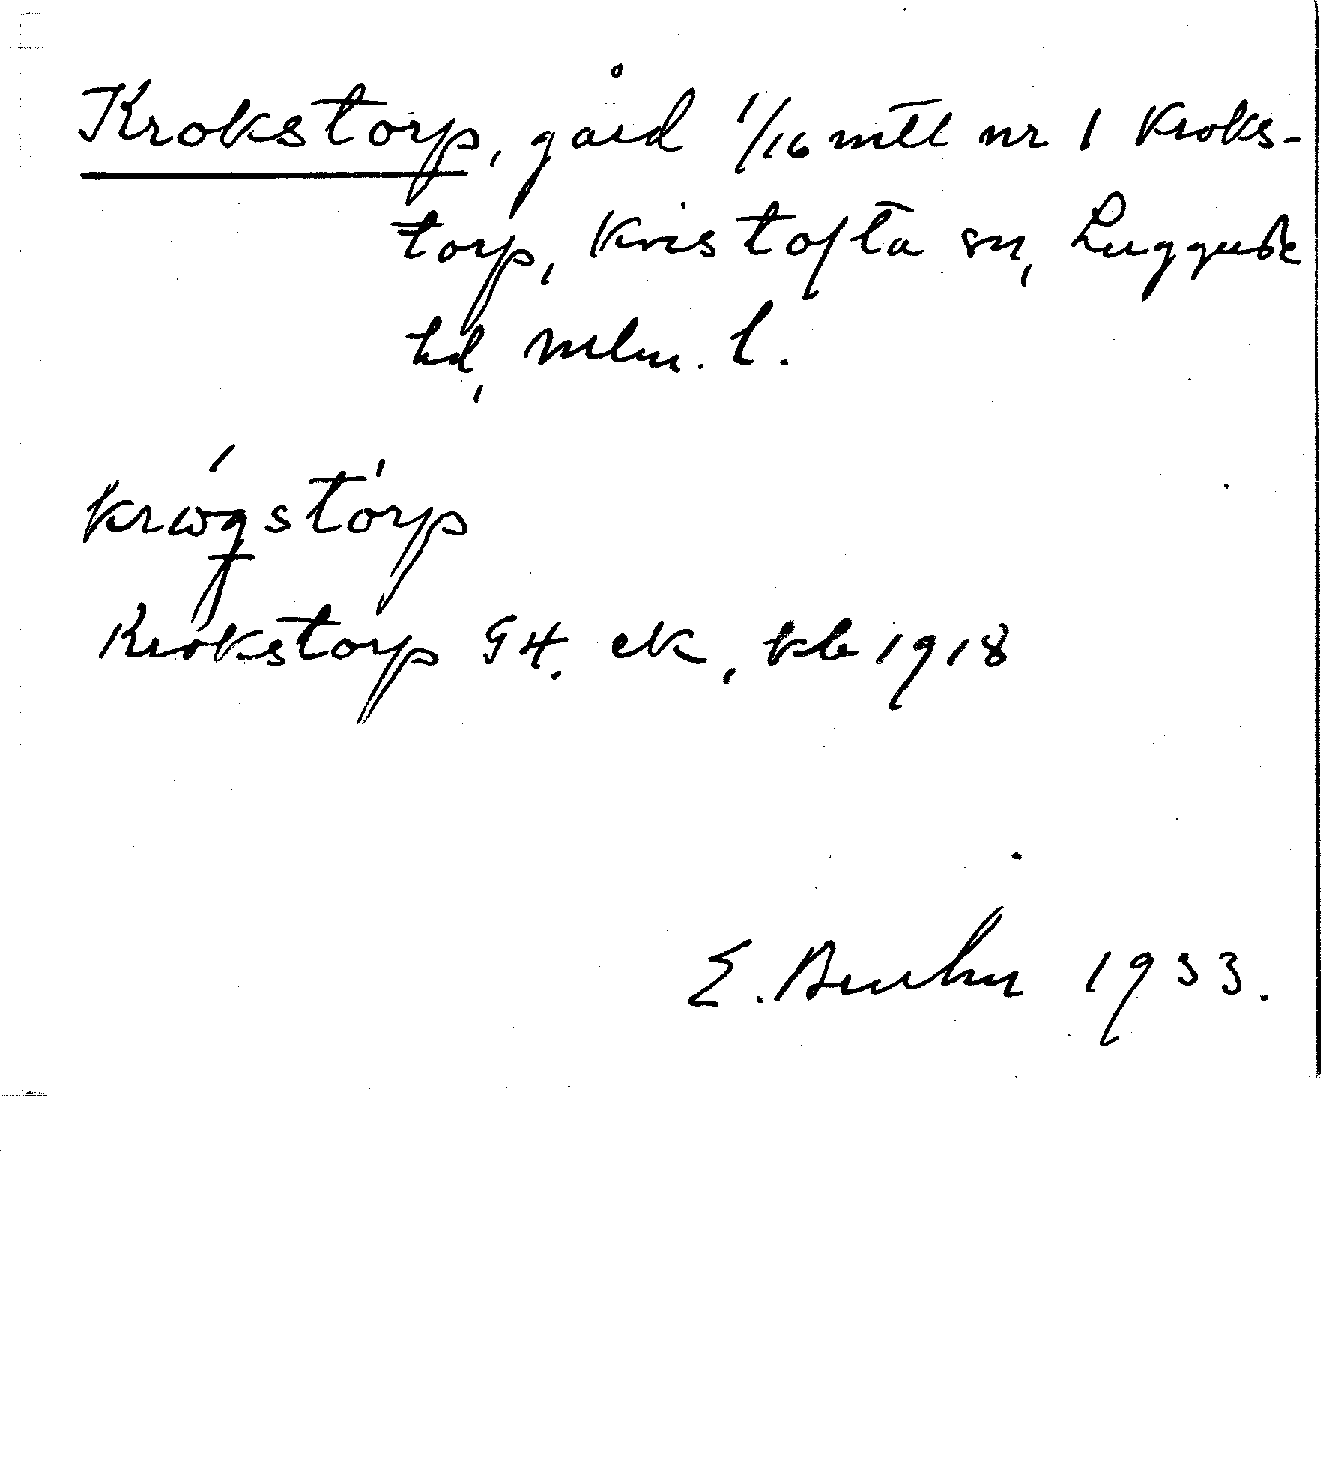 Krokstorp, gård 1/16 mtl nr 1 Kroks-
torp, Kvistofta sn, Luggude
hd, Mlm. l.
krǫgstórp
Krokstorp GK. ek, kb 1918
E. 1933.